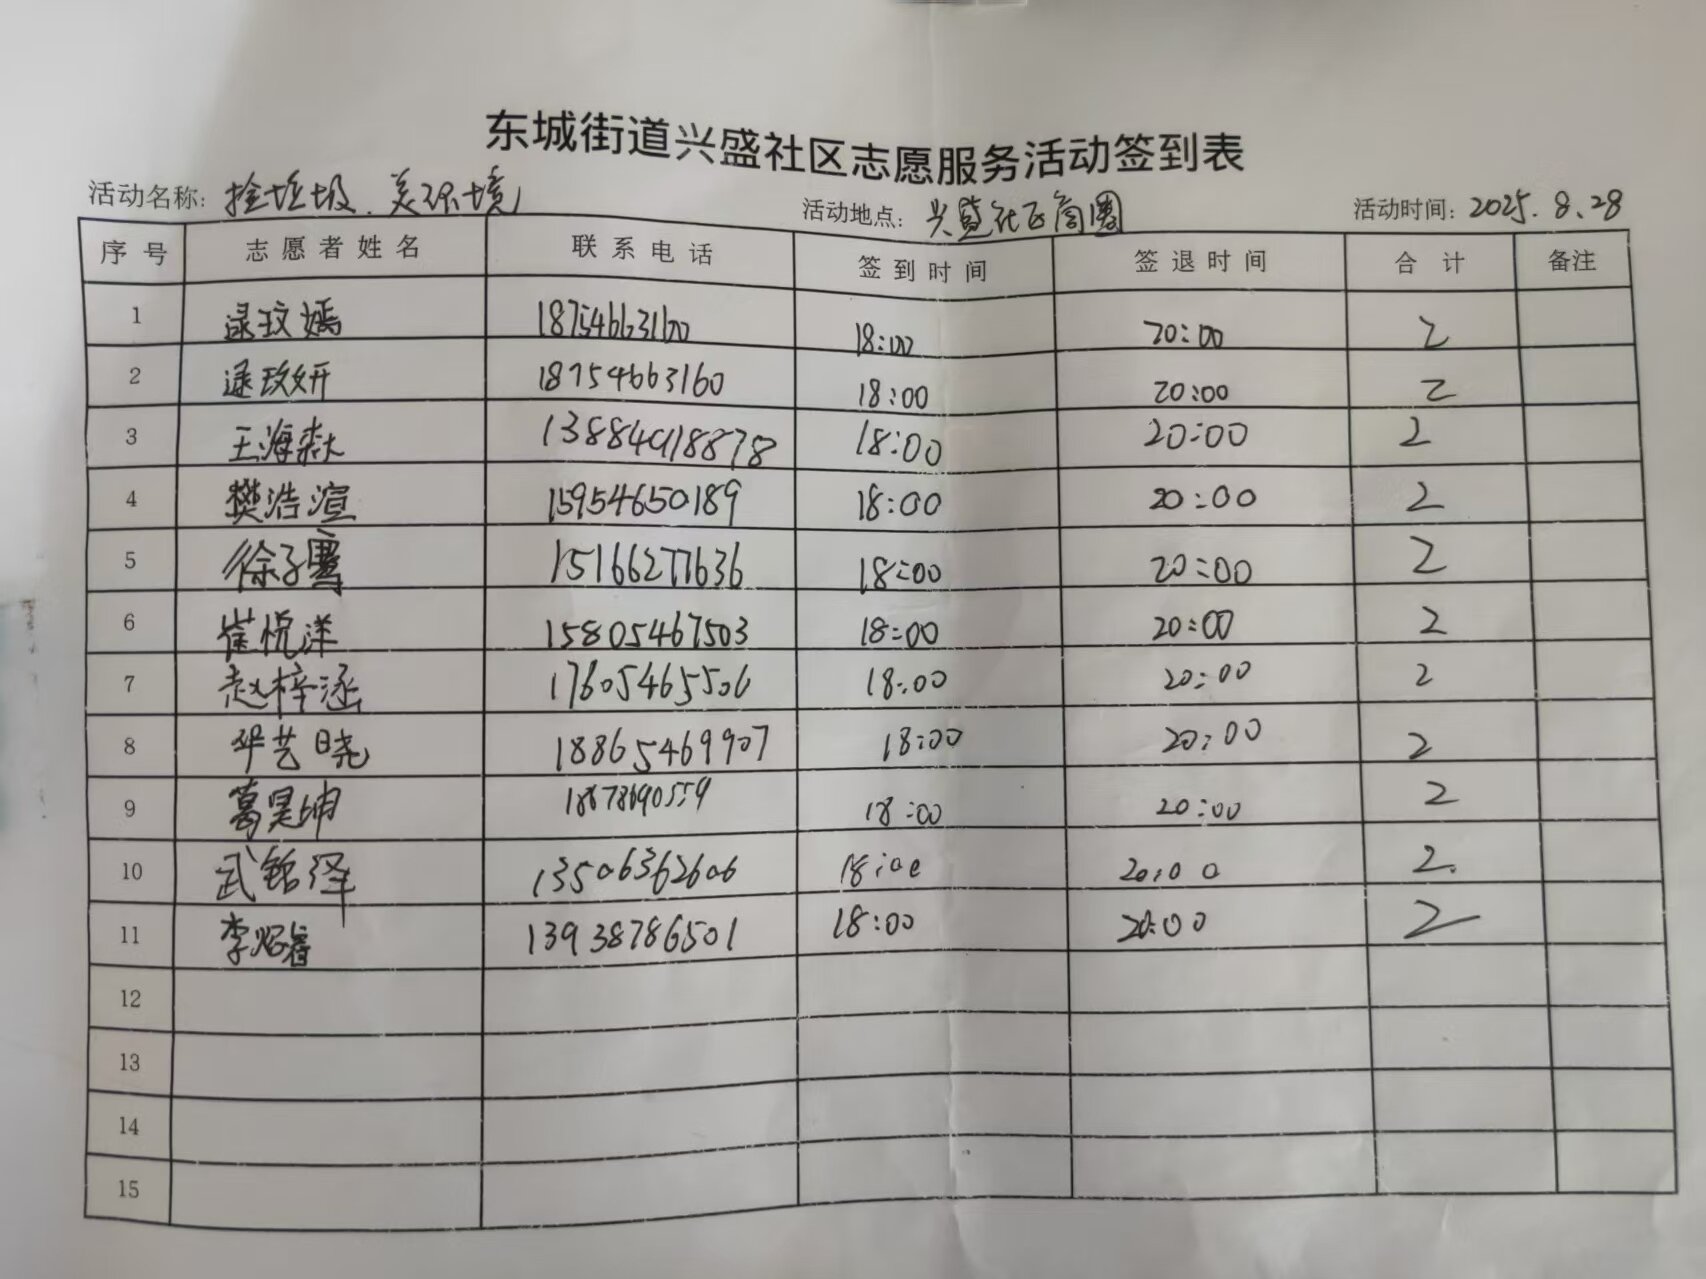 东城街道兴盛社区志愿服务活动签到表
活动名称: 捡垃圾、美环境 活动地点: 兴盛社区商圈 活动时间: 2025.8.28
序号 志愿者姓名 联系电话 签到时间 签退时间 合计 备注
1 逯玟嫣 18754663160 18:00 20:00 2
2 逯玟妍 18754663160 18:00 20:00 2
3 王海 18:00 20:00 2
4 樊浩渲 15954650189 18:00 20:00 2
5 徐子骞 15166277636 18:00 20:00 2
6 崔悦洋 15805467503 18:00 20:00 2
7 赵梓涵 17605465506 18:00 20:00 2
8 华艺晓 18865469907 18:00 20:00 2
9 葛昊坤 18678690559 18:00 20:00 2
10 武铭泽 13506362606 18:00 20:00 2.
11 李昭睿 13938786501 18:00 20:00 2
12
13
14
15